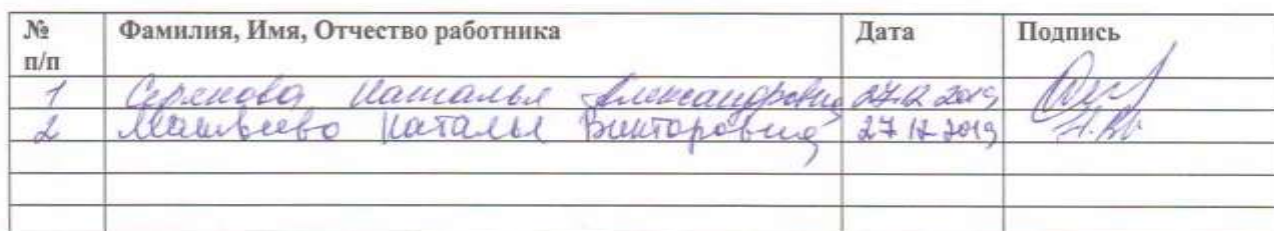 № п/п Фамилия, Имя, Отчество работника Дата Подпись
1 Наталья Александровна 27.12 2019
2 Матвеева Наталья Викторовна 27 12 2019